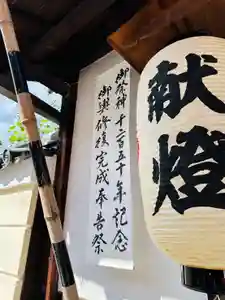 御神忌千百五十年記念
御輿修復完成奉告祭
献燈